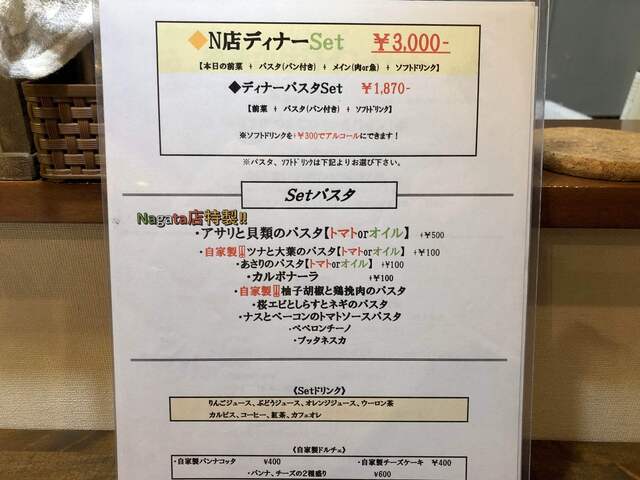 ◆N店ディナーSet ￥3,000-
【本日の前菜 + パスタ(パン付き) + メイン(肉or魚) + ソフトドリンク】
◆ディナーパスタSet ￥1,870-
【前菜 + パスタ(パン付き) + ソフトドリンク】
※ソフトドリンクを+￥300でアルコールにできます！
※パスタ、ソフトドリンクは下記よりお選び下さい。
Setパスタ
Nagata店特製!!
・アサリと貝類のパスタ【トマトorオイル】 +￥500
・自家製!!ツナと大葉のパスタ【トマトorオイル】 +￥100
・あさりのパスタ【トマトorオイル】 +￥100
・カルボナーラ +￥100
・自家製!!柚子胡椒と鶏挽肉のパスタ
・桜エビとしらすとネギのパスタ
・ナスとベーコンのトマトソースパスタ
・ペペロンチーノ
・プッタネスカ
《Setドリンク》
りんごジュース、ぶどうジュース、オレンジジュース、ウーロン茶
カルピス、コーヒー、紅茶、カフェオレ
《自家製ドルチェ》
・自家製パンナコッタ ￥400 ・自家製チーズケーキ ￥400
・パンナ、チーズの2種盛り ￥600